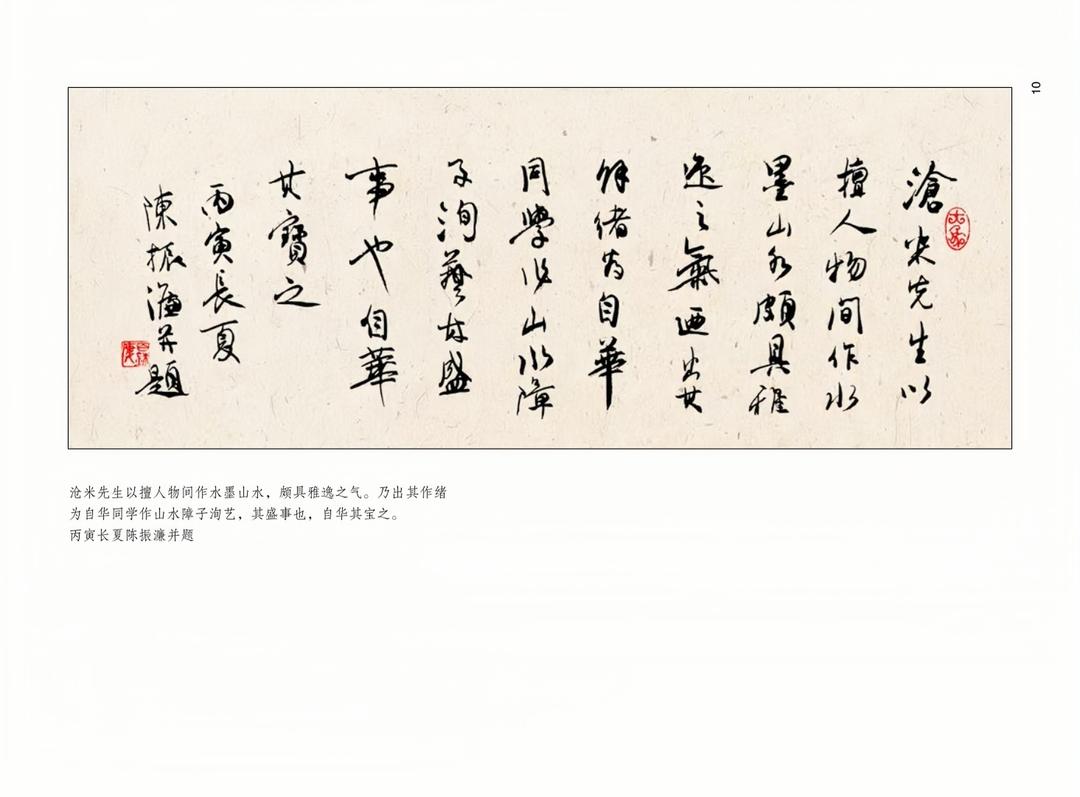 10
滄米先生以
擅人物間作水
墨山水頗具雅
逸之氣迺出其
餘緒為自華
同學作山水障
子洵藝林盛
事也自華
其寶之
丙寅長夏
陳振濂并題
沧米先生以擅人物间作水墨山水，颇具雅逸之气。乃出其作绪
为自华同学作山水障子洵艺，其盛事也，自华其宝之。
丙寅长夏陈振濂并题